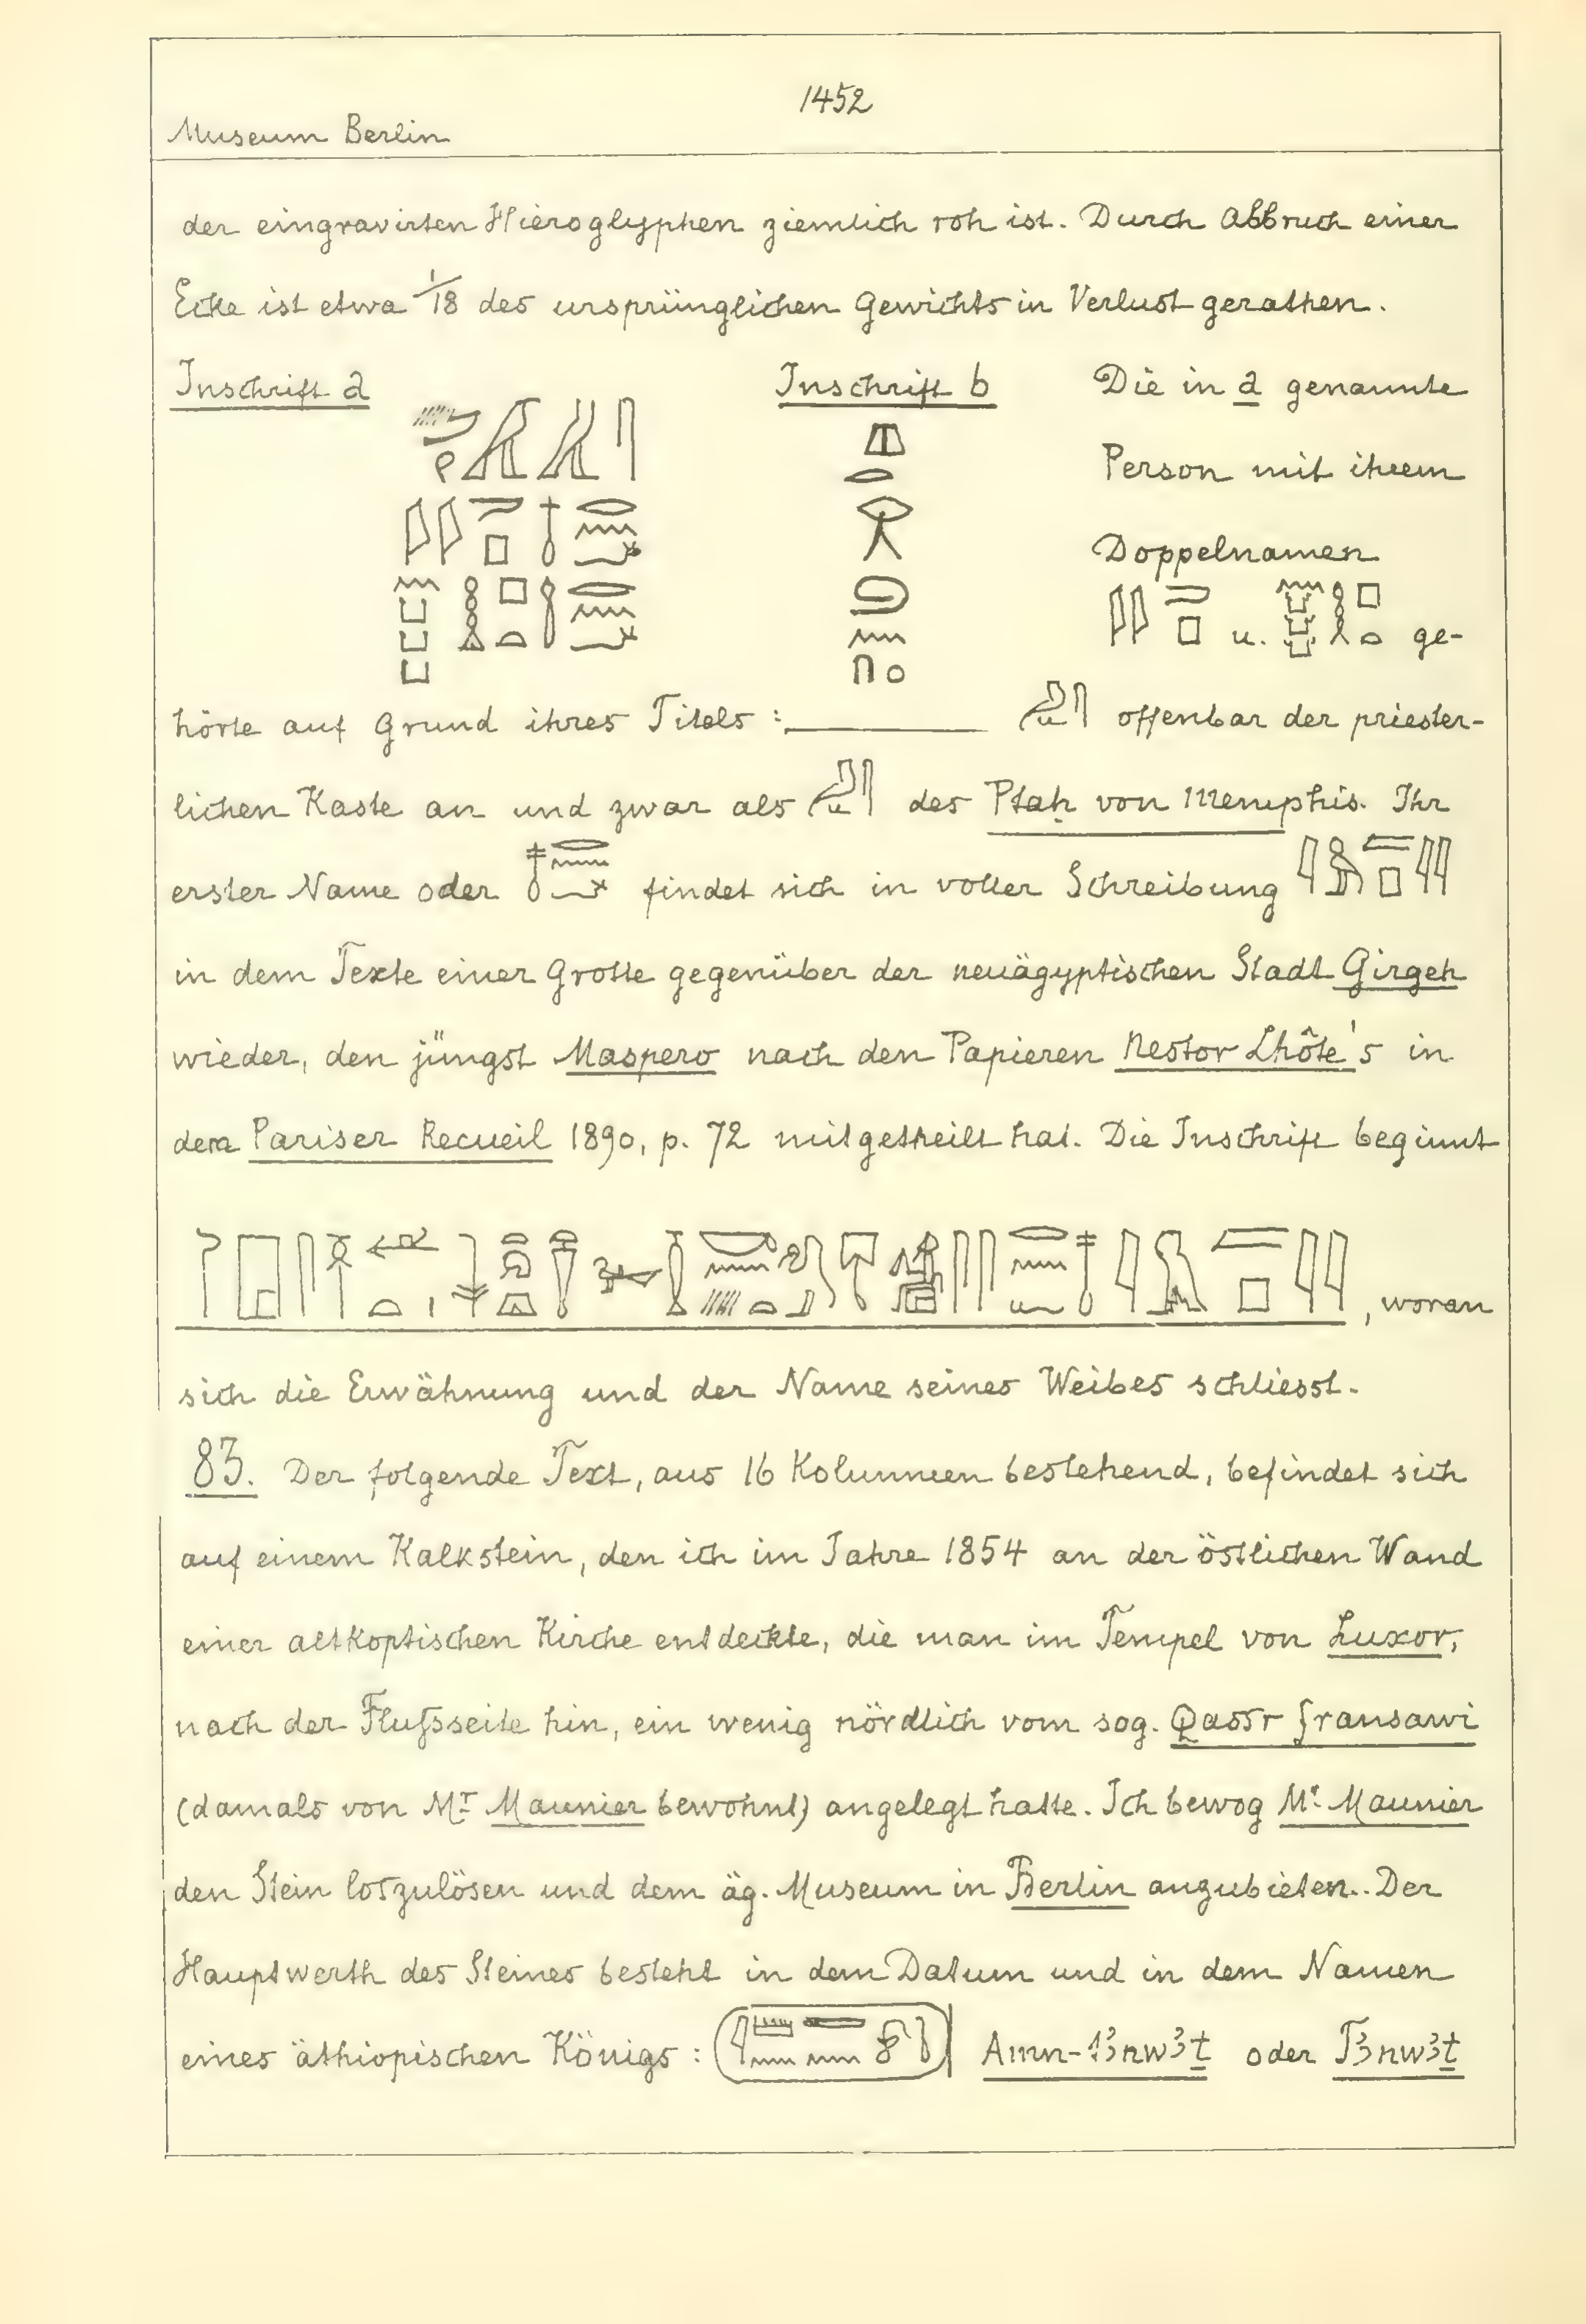 1452
Museum Berlin
der eingravirten Hieroglyphen ziemlich roh ist. Durch Abbruch einer
Ecke ist etwa 1/18 des ursprünglichen Gewichts in Verlust gerathen.
Inschrift a
Inschrift b
Die in a genannte
Person mit ihrem
Doppelnamen
u. ge-
hörte auf Grund ihres Titels: offenbar der priester-
lichen Kaste an und zwar als des Ptaḥ von Memphis. Ihr
erster Name oder findet sich in voller Schreibung
in dem Texte einer Grotte gegenüber der neuägyptischen Stadt Girgeh
wieder, den jüngst Maspero nach den Papieren Nestor Lhôte's in
dem Pariser Recueil 1890, p. 72 mitgetheilt hat. Die Inschrift beginnt
, woran
sich die Erwähnung und der Name seines Weibes schliesst.
83. Der folgende Text, aus 16 Kolumnen bestehend, befindet sich
auf einem Kalkstein, den ich im Jahre 1854 an der östlichen Wand
einer altkoptischen Kirche entdeckte, die man im Tempel von Luxor,
nach der Flußseite hin, ein wenig nördlich vom sog. Qassr fransawi
(damals von Mr Maunier bewohnt) angelegt hatte. Ich bewog Mr Maunier
den Stein loszulösen und dem äg. Museum in Berlin anzubieten. Der
Hauptwerth des Steines besteht in dem Datum und in dem Namen
eines äthiopischen Königs: oder